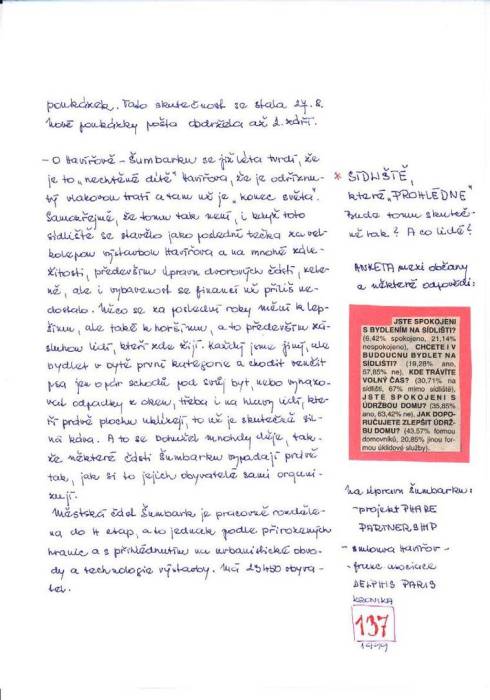 poukázek. Tato skutečnost se stala 27.8.
Nové poukázky pošta obdržela až 2. září.
- O Havířově - Šumbarku se již léta tvrdí, že
je to "nechtěné dítě" Havířova, že je odříznu-
tý vlakovou tratí a tam už je "konec světa".
Samozřejmě, že tomu tak není, i když toto
sídliště se stavělo jako poslední tečka za vel-
kolepou výstavbou Havířova a na mnohé zále-
žitosti, především úpravu dvorových částí, zele-
ně, ale i vybavenost se financí už příliš ne-
dostalo. Něco se za poslední roky mění k lep-
šímu, ale také k horšímu, a to především zá-
sluhou lidí, kteří zde žijí. Každý jsme jiný, ale
bydlet v bytě první kategorie a chodit venčit
psa jen o pár schodů pod svůj byt, nebo vyhazo-
vat odpadky z oken, třeba i na hlavy lidí, kte-
ří právě plochu uklízejí, to už je skutečně sil-
ná káva. A to se bohužel mnohdy děje, tak-
že některé části Šumbarku vypadají právě
tak, jak si to jejich obyvatelé sami organi-
zují.
Městská část Šumbark je pracovně rozděle-
na do 4 etap, a to jednak podle přirozených
hranic a s přihlédnutím na urbanistické obvo-
dy a technologie výstavby. Má 23450 obyva-
tel.
* SÍDLIŠTĚ,
které "PROHLÉDNE"
Bude tomu skuteč-
ně tak? A co lidé?
ANKETA mezi občany
a některé odpovědi:
JSTE SPOKOJENI
S BYDLENÍM NA SÍDLIŠTI?
(6,42% spokojeno, 21,14%
nespokojeno), CHCETE I V
BUDOUCNU BYDLET NA
SÍDLIŠTI? (19,28% ano,
57,85% ne), KDE TRÁVÍTE
VOLNÝ ČAS? (30,71% na
sídliště, 67% mimo sídliště),
JSTE SPOKOJENI S
ÚDRŽBOU DOMU? (35,85%
ano, 63,42% ne), JAK DOPO-
RUČUJETE ZLEPŠIT ÚDRŽ-
BU DOMU? (43,57% formou
domovníků, 20,85% jinou for-
mou úklidové služby).
Na úpravu Šumbarku:
- projekt PHARE
PARTNERSHIP
- smlouva Havířov -
- franc. asociace
DELPHIS PARIS
KRONIKA
137
1999